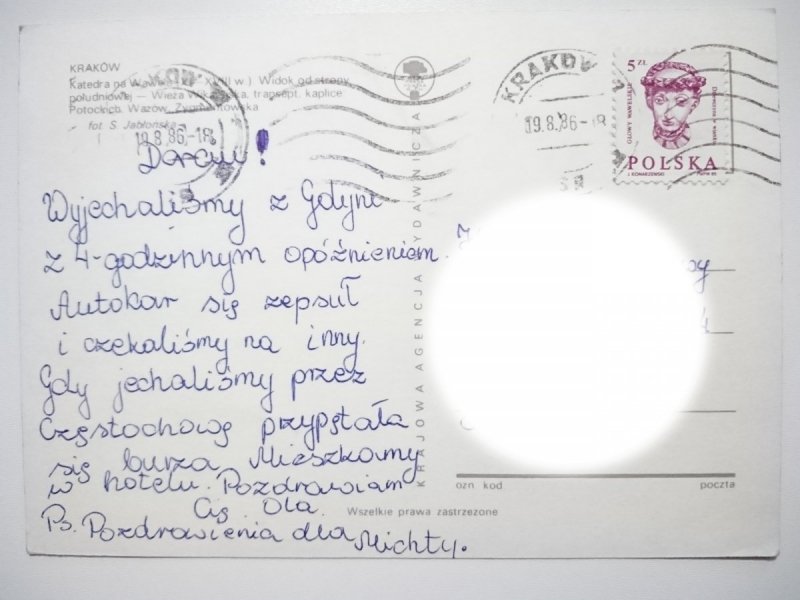 KRAKÓW
Katedra na Wawelu XVIII w.) Widok od strony
południowej — Wieża Wikaryjska, transept, kaplice
Potockich, Wazów, Zygmuntowska
fot. S. Jabłońska
KRAKÓW
19.8.86.-18
KRAKÓW
19.8.86-18
5 ZŁ
GŁOWY WAWELSKIE
POLSKA
J. KONARZEWSKI PWPW 85
KRAJOWA AGENCJA WYDAWNICZA
Wyjechaliśmy z Gdyni
z 4-godzinnym opóźnieniem.
Autokar się zepsuł
i czekaliśmy na inny.
Gdy jechaliśmy przez
Częstochowę przypętała
się burza. Mieszkamy
w hotelu. Pozdrawiam
Cię Ola.
Ps. Pozdrowienia dla Michty.
ozn kod poczta
Wszelkie prawa zastrzeżone